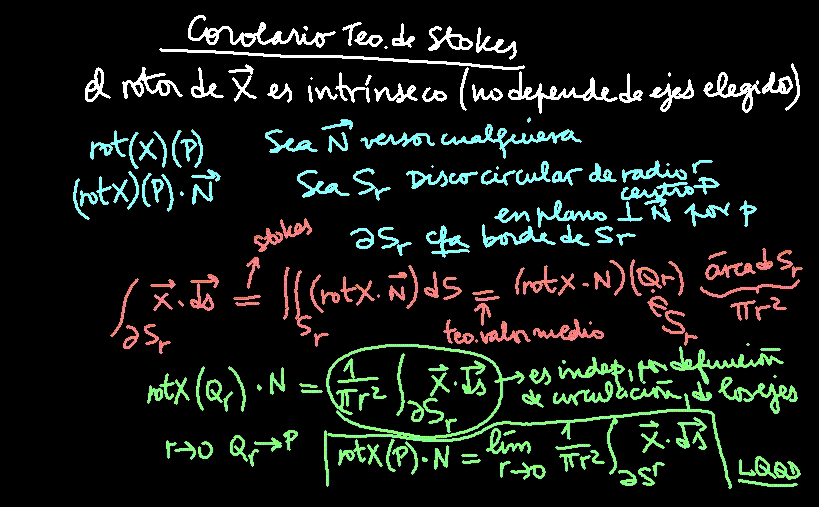 Corolario Teo. de Stokes
El rotor de X⃗ es intrínseco (no depende de ejes elegido)
rot(X)(P) Sea N⃗ versor cualquiera
(rotX)(P)·N⃗ Sea Sr Disco circular de radio r
centro P
en plano ⊥ N⃗ por p
∂Sr cfa borde de Sr
stokes
∫∂Sr X⃗·ds⃗ = ∬Sr (rotX·N⃗) dS = (rotX·N)(Qr) área de Sr
teo. valor medio ∈ Sr πr²
rotX(Qr)·N = (1/πr² ∫∂Sr X⃗·ds⃗) → es indep, por definición
de circulación, de los ejes
r→0 Qr→P rotX(P)·N = lím r→0 1/πr² ∫∂Sr X⃗·ds⃗ LQQD